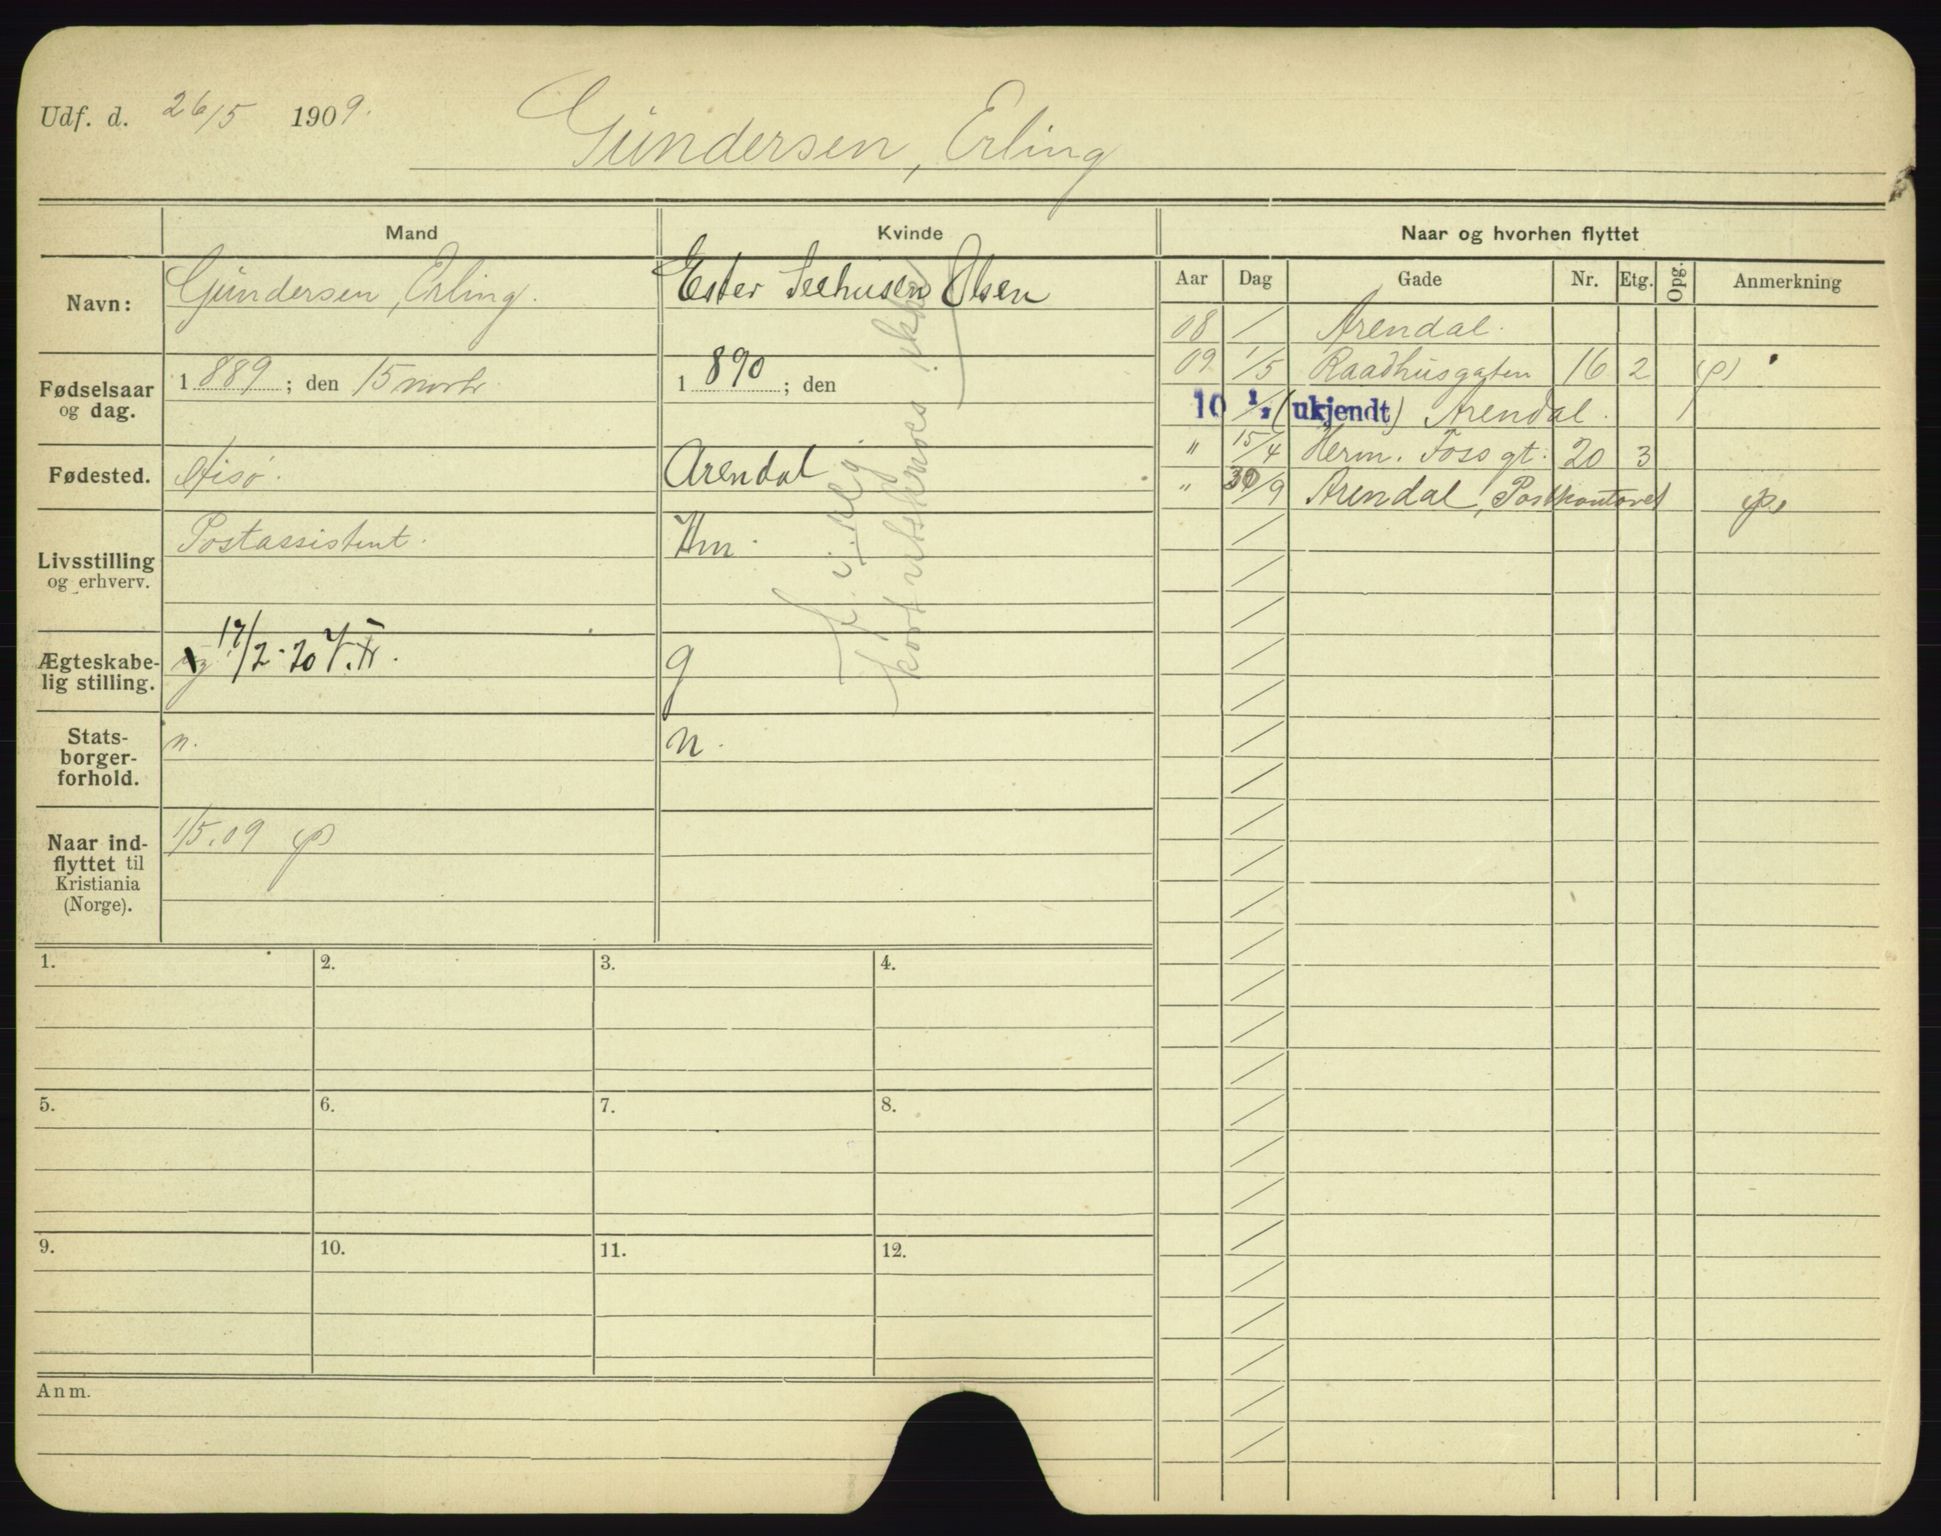 Udf. d. 26/5 1909.
Gundersen, Erling
Mand
Kvinde
Naar og hvorhen flyttet
Navn:
Gundersen, Erling.
Ester Seehusen Olsen
Fødselsaar og dag.
1889; den 15 novbr
1890; den
Fødested.
Hisø.
Arendal
Livsstilling og erhverv.
Postassistent.
Hm.
Ægteskabelig stilling.
ug 17/2-20
g
Statsborgerforhold.
n.
n.
Naar indflyttet til Kristiania (Norge).
1/5.09 (p)
kort utskrives ikke
Aar Dag Gade Nr. Etg. Opg. Anmerkning
08 / Arendal.
09 1/5 Raadhusgaten 16 2 (p)
10 1/2 (ukjendt) Arendal.
" 15/4 Herm. Foss gt. 20 3
" 30/9 Arendal, Postkontoret (p)
1.
2.
3.
4.
5.
6.
7.
8.
9.
10.
11.
12.
Anm.